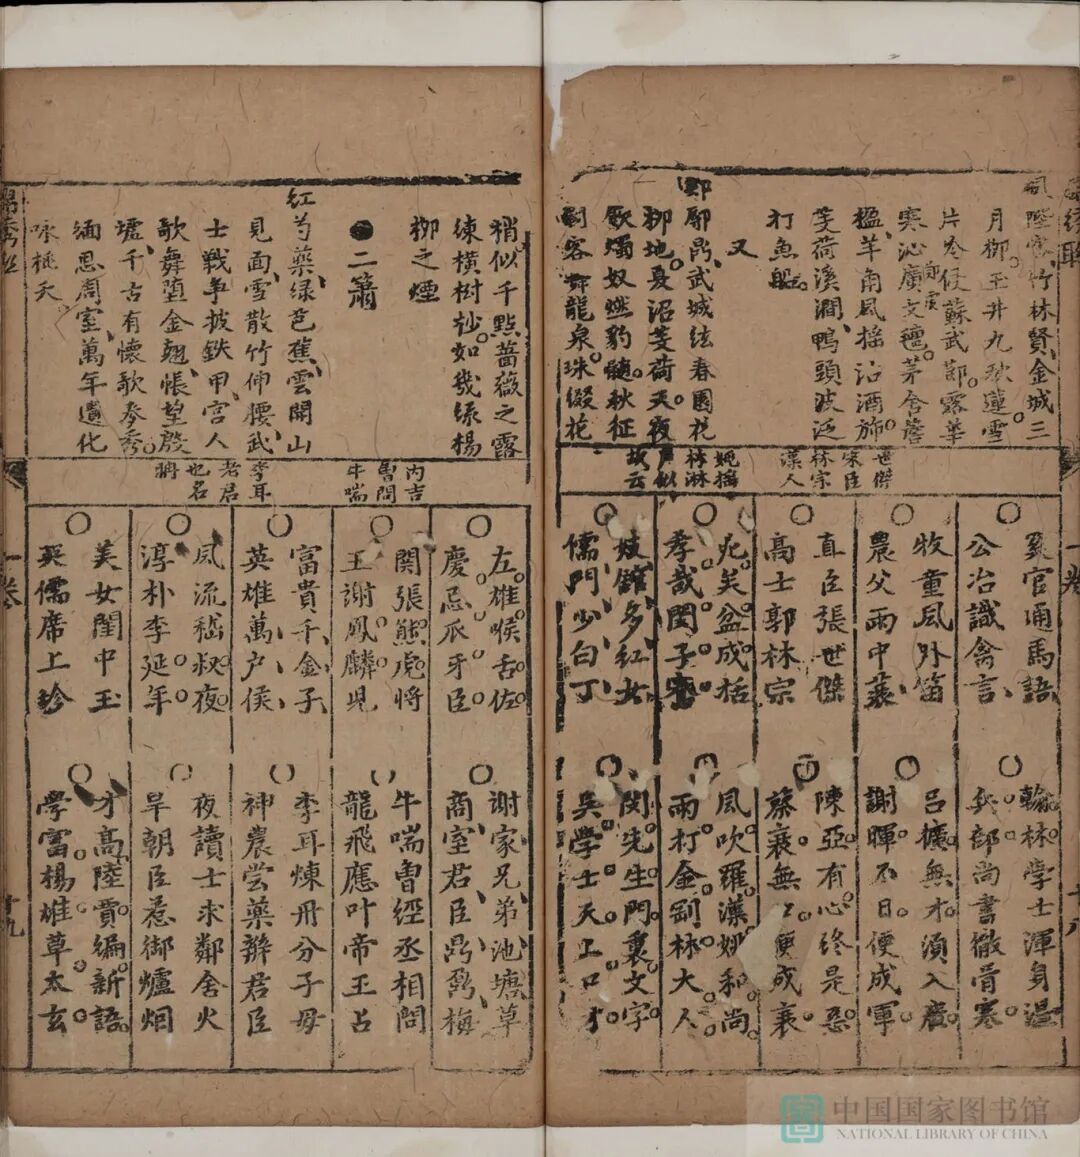 陛寒竹林賢金城三
月柳玉井九秋蓮雪
片冷侵蘇武節露華
寒沁廣文氊茅舍簷
楹羊角風搖沽酒斾
芰荷溪澗鴨頭波泛
打魚船
又
郢郭鼎武城絃春園花
柳地夏沼芰荷天夜
歌燭奴燃豹髓秋征
劍客舞龍泉珠綴花
梢似千點薔薇之露
練橫樹杪如幾綠楊
柳之煙
二蕭
紅芍藥綠芭蕉雲開山
見面雪散竹伸腰武
士戰爭披鉄甲宮人
歌舞墮金翹悵望殷
墟千古有懷歌麥秀
緬思周室萬年遺化
咏桃夭
世傑
宋臣
林宗
漢人
姚搖
林淋
聲似
故云
丙吉
曾問
牛喘
李耳
老君
也名
聃
公冶識禽言
官通馬語
牧童風外笛
農父雨中蓑
直臣張世傑
高士郭林宗
孝哉閔子騫
妓館多紅女
儒門少白丁
翰林學士渾身濕
兵部尚書徹骨寒
呂望無才須入廣
謝暉不日便成軍
陳亞有心終是惡
蔡襄無口便成衰
風吹羅漢搖和尚
雨打金剛林大人
閔先生門裏文字
吳學士天上口才
左雄喉舌佐
慶忌爪牙臣
関張熊虎將
王謝鳳麟兒
富貴千金子
英雄萬户侯
風流嵇叔夜
淳朴李延年
美女閨中玉
英儒席上珍
謝家兄弟池塘草
商室君臣鼎鼐梅
牛喘曾經丞相問
龍飛應叶帝王占
李耳煉丹分子母
神農嘗藥辨君臣
夜讀士求鄰舍火
早朝臣惹御爐烟
才高陸賈編新語
學富楊雄草太玄
一卷
十八
一卷
十九
中国国家图书馆
NATIONAL LIBRARY OF CHINA